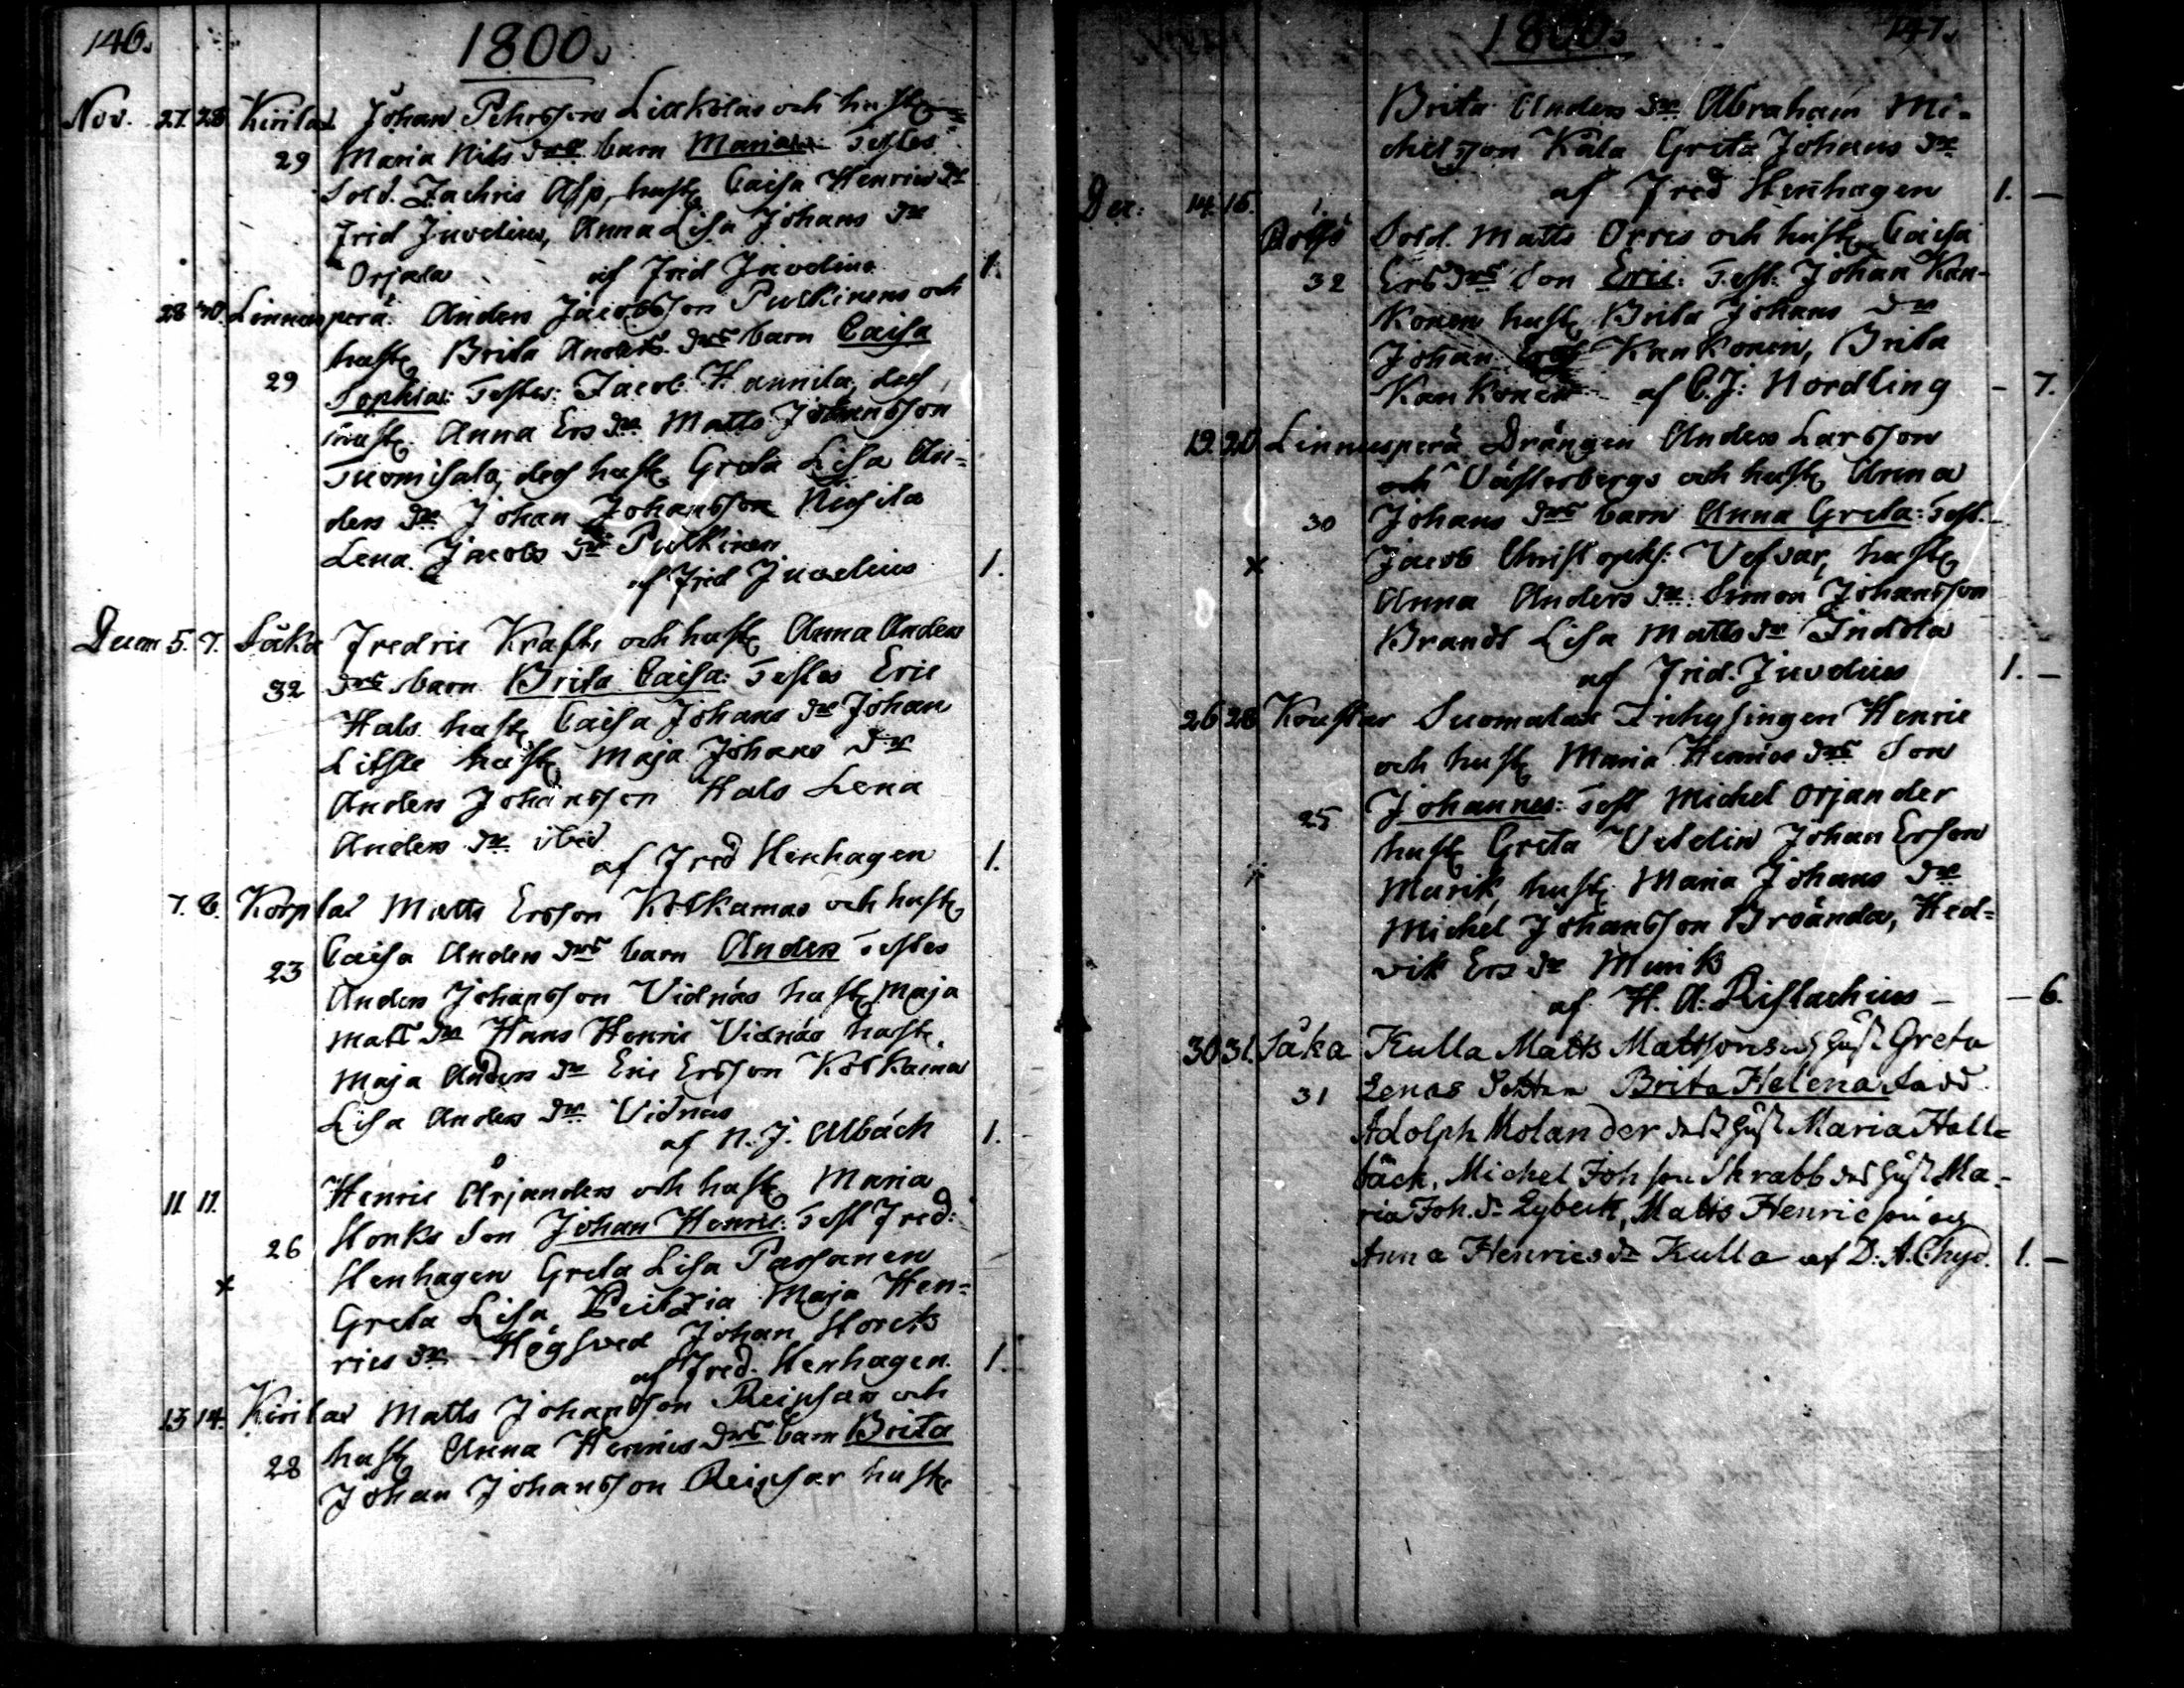 146.
1800.
Nov. 27. 28 Kirilax Johan Pehrssons Lillkölas och hustr
29 Maria Nils drs barn Maria: Testes
Sold. Zachris Asp, hustr Caisa Henrics dr
Fred Juvelius, Anna Lisa Johans dr
Orjala af Fred Juvelius 1.
28 30. Linnusperä: Anders Jacobsson Pulkinens och
hustr Brita Anders drs barn Caisa
29 Sophia: Testes: Jacob Hannila, dess
hustr. Anna Ers dr Matts Johansson
Tuomisala, dess hustr. Greta Lisa An-
ders dr Johan Johansson
Lena Jacobs dr Pulkinen
af Fred Juvelius 1.
Decem 5. 7. Såka Fredric Krafts och hustr Anna Anders
32 drs barn Brita Caisa: Testes Eric
Hals hustr Caisa Johans dr Johan
hustr Maja Johans dr
Anders Johansson Hals Lena
Anders dr ibid
af Fred Stenhagen 1.
7. 8. Korplax Matts Ersson Kolkamas och hustr
23 Caisa Anders drs barn Anders Testes
Anders Johansson Vidnäs hustr Maja
Matts dr Hans Henric Vidnäs hustr.
Maja Anders dr Eric Ersson Kolkama
Lisa Anders dr Vidnäs
af N. J. Albäck 1.
11 11. Henric Årjanders och hustr Maria
26 Storcks Son Johan Henric: Test Fred:
Stenhagen Greta Lisa Passanen
x Greta Lisa Peitzia Maja Hen-
rics dr Högsved Johan Storck
af Fred. Stenhagen. 1.
13 14. Kirilax Matts Johansson Reipsars och
28 hustr Anna Henrics drs barn Brita
Johan Johansson Reipsar hustr
1800.
147.
Brita Anders dr Abraham Mi-
chelsson Kåla Greta Johans dr
af Fred Stenhagen 1. —
Dec: 14. 15. Rolfs Sold. Matts Orres och hustr Caisa
32 Ers drs Son Eric: Test. Johan Kan-
konen hustr Brita Johans dr
Johan Kankonen, Brita
Kankonen af C. J: Nordling — 7.
19. 20 Linnusperä Drängen Anders Larsson
Västerbergs och hustr Anna
30 Johans drs barn Anna Greta: Test.
x Jacob Christophs: Vefvar, hustr
Anna Anders dr: Simon Johansson
Brandt Lisa Matts dr Indola
af Fred. Juvelius 1. —
26 28 Suomalax Inhysingen Henric
och hustr Maria Henrics drs Son
25 Johannes: Test Michel Orjander
hustr Greta Johan Ersson
Murik, hustr Maria Johans dr
Michel Johansson Broända, Hed-
vik Ers dr Murik
af H. A. Rislachius — — 6.
30 31. Såka Kulla Matts Mattsons och hust Greta
31 Lenas Dotter Brita Helena
Adolph Molander dess hust Maria Hall-
bäck, Michel Joh son Skrabb dess hust Ma-
ria Joh. dr Lybeck, Matts Henricson och
Anna Henrics dr Kulla af D: A. Chyd. 1. —